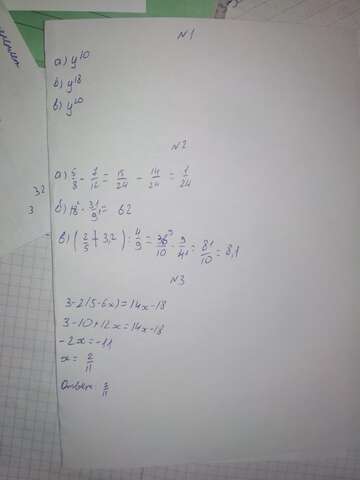 №1
а) y¹⁰
в) y¹⁸
в) y²⁰
№2
а) 5/8 - 7/12 = 15/24 - 14/24 = 1/24
б) 18² · 31/9¹ = 62
3,2
3
в) (2/5 + 3,2) : 4/9 = 36⁹/10 · 9/4¹ = 81/10 = 8,1
№3
3-2(5-6x)=14x-18
3-10+12x=14x-18
-2x=-11
x= 2/11
Ответ: 2/11